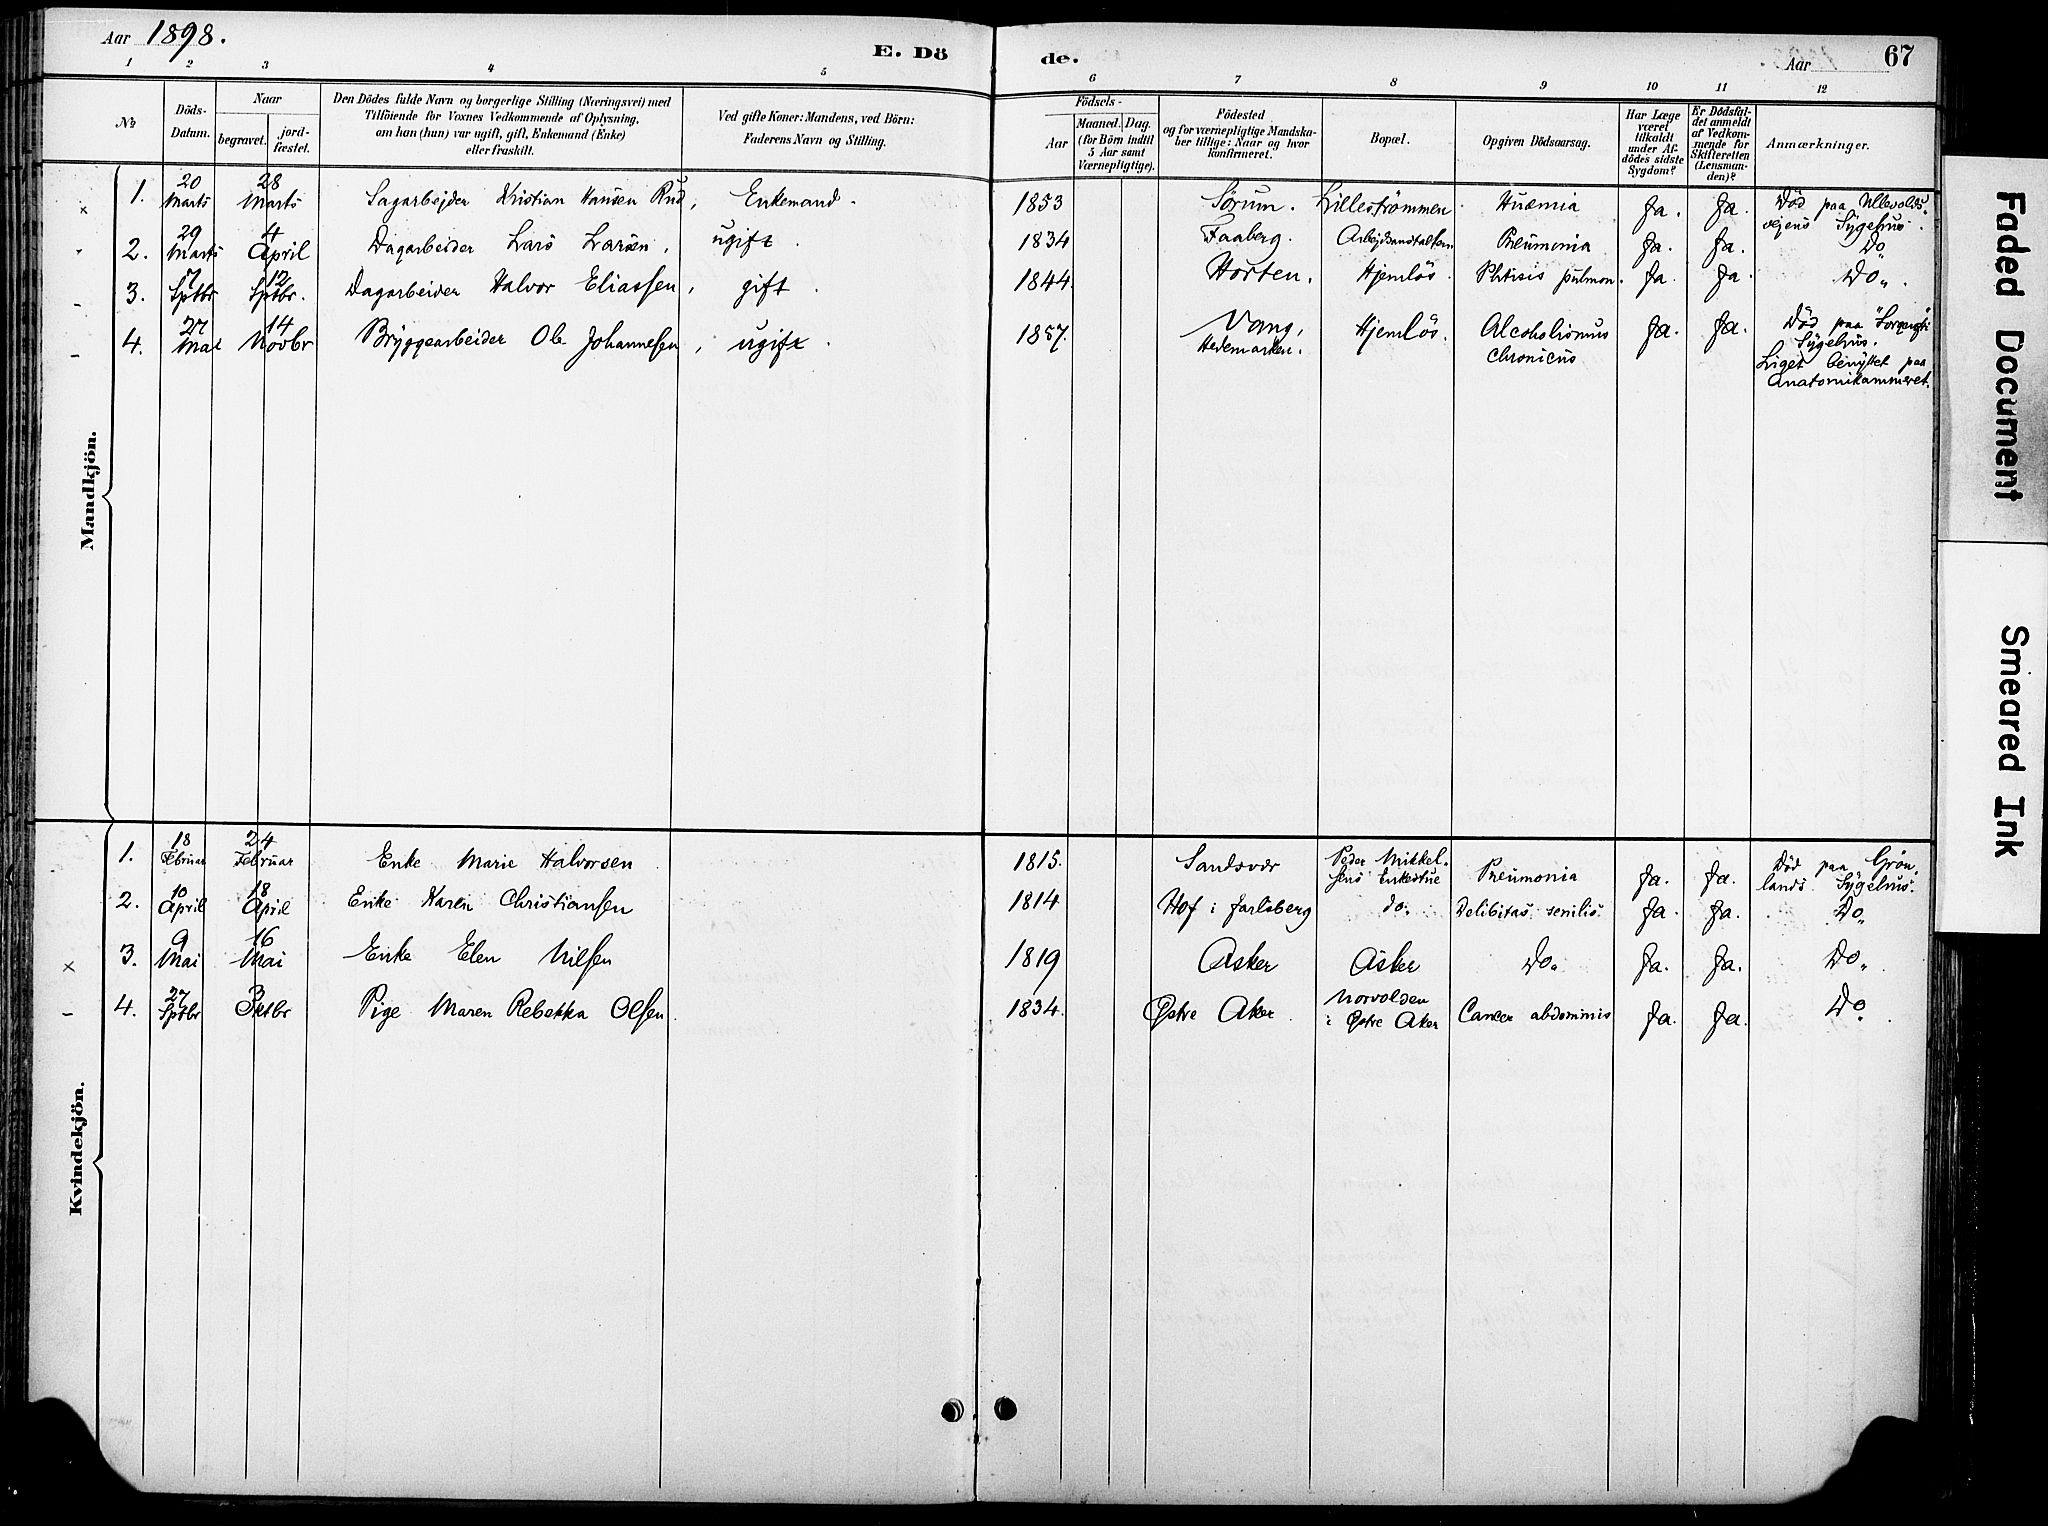 Aar 1898.
E. Dö
de.
Aar
67
1 2 3 4 5 6 7 8 9 10 11 12
No
Döds-Datum.
Naar
begravet.
jord-fæstet.
Den Dödes fulde Navn og borgerlige Stilling (Næringsvei) med
Tilföiende for Voxnes Vedkommende af Oplysning,
om han (hun) var ugift, gift, Enkemand (Enke)
eller fraskilt.
Ved gifte Koner: Mandens, ved Börn:
Faderens Navn og Stilling.
Födsels-
Aar
Maaned.
Dag.
(for Börn indtil
5 Aar samt
Værnepligtige).
Födested
og for værnepligtige Mandska-
ber tillige: Naar og hvor
konfirmeret.
Bopæl.
Opgiven Dödsaarsag.
Har Læge
været
tilkaldt
under Af-
dödes sidste
Sygdom?
Er Dödsfal-
det anmeldt
af Vedkom-
mende for
Skifteretten
(Lensman-
den)?
Anmærkninger.
Mandkjön.
1. 20 Marts 28 Marts Sagarbejder Kristian Hansen Rud, Enkemand. 1853 Sørum. Lillestrømmen Ja. Ja. Död paa Ullevolds-
vejens Sygehus.
2. 29 Marts 4 April Dagarbeider Lars Larsen, ugift. 1834 Faaberg. Arbejdsanstalten Pneumonia Ja. Ja. Do
3. 7 Sptbr 12 Sptbr. Dagarbeider Halvor Eliassen, gift. 1844. Horten. Hjemlös. Phtisis pulmon. Ja. Ja. Do.
4. 27 Mai 14 Novbr Bryggearbeider Ole Johannesen, ugift. 1857. Vang, Hjemlös. Alcoholismus Ja. Ja. Död paa
Hedemarken. chronicus Sygehus.
Liget benyttet paa
Anatomikammeret.
Kvindekjön.
1. 18 Februar 24 Februar Enke Marie Halvorsen 1815. Sandsvær Peder Mikkel-
sens Enkestue Pneumonia Ja. Ja. Död paa Grön-
lands Sygehus.
2. 10 April 18 April Enke Karen Christiansen 1814 Hof i Jarlsberg do. Delibitas senilis. Ja. Ja. Do
3. 9 Mai 16 Mai Enke Elen Nilsen 1819 Asker Asker Do. Ja. Ja. Do.
4. 27 Sptbr 3 Oktbr Pige Maren Rebekka Olsen. 1834. Østre Aker. Norvolden
i Østre Aker Cancer abdominis Ja. Ja. Do.
Faded Document
Smeared Ink